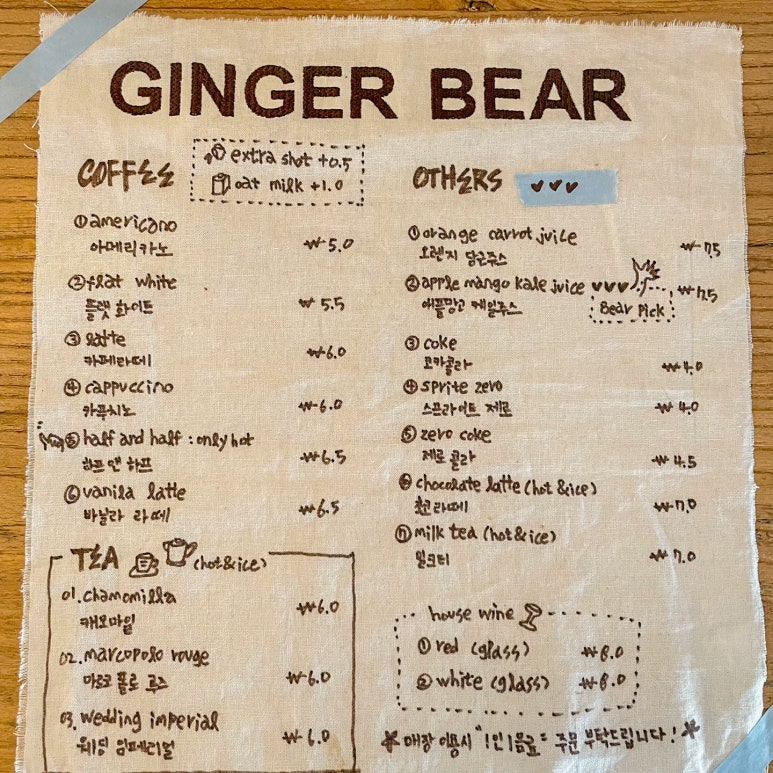 GINGER BEAR
COFFEE
extra shot +0.5
oat milk +1.0
① americano
아메리카노 ₩ 5.0
② flat white
플랫 화이트 ₩ 5.5
③ latte
카페라떼 ₩6.0
④ cappuccino
카푸치노 ₩6.0
⑤ half and half : only hot
하프 앤 하프 ₩6.5
⑥ vanila latte
바닐라 라떼 ₩6.5
TEA (hot&ice)
01. chamomilla
캐모마일 ₩6.0
02. marcopolo rouge
마르코 폴로 루즈 ₩6.0
03. wedding imperial
웨딩 임페리얼 ₩6.0
OTHERS
① orange carrot juice
오렌지 당근주스 ₩7.5
② apple mango kale juice ₩7.5
애플망고 케일주스
Bear Pick
③ coke
코카콜라 ₩4.0
④ sprite zero
스프라이트 제로 ₩4.0
⑤ zero coke
제로 콜라 ₩4.5
⑥ chocolate latte (hot &ice)
초코라떼 ₩7.0
⑦ milk tea (hot&ice)
밀크티 ₩7.0
house wine
① red (glass) ₩8.0
② white (glass) ₩8.0
* 매장 이용시 "1인 1음료" 주문 부탁드립니다! *